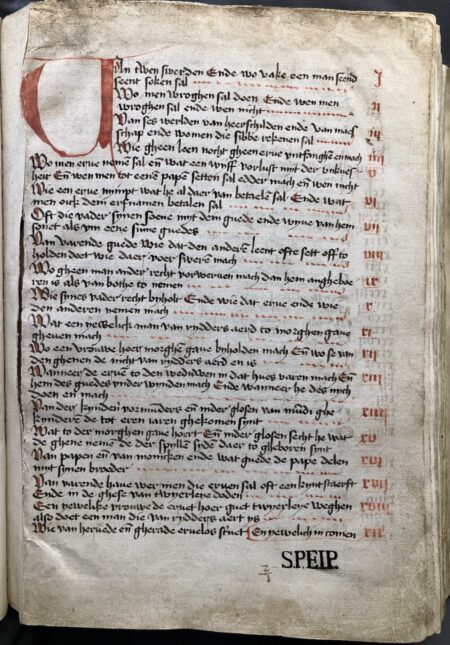 Van twen swerden Ende wo vake een man seend
seent soken sal j
Wo men wroghen sal doen Ende wen men
wroghen sal ende wen nicht ij
Van ses werlden van heerschilden ende van mach
schap ende wo men die sibbe rekenen sal iij
Wie gheen leen nocht gheen erve untfanghen en mach iiij
Wo men erve neme sal en̄ wat een wyff vorlust mit der unkuesc
heit En̄ wen men tot enē papē setten sal edder mach en̄ wen nicht v
Wie een erve nimpt wat he al daer van betaelē sal Ende wat
men oick dem erfnamen betalen sal vi
Oft die vader sinen soene mit dem guede ende wyve van hem
sonet als vm eene sume guedes vij
Van varende guede wie dat den anderē leent ofte sett off to
holden doet wie daer voer swerē mach viij
Wo gheen man ander recht vorwerven mach dan hem angheboe
ren is als van bothe to nemen ix
Wie sines vader recht byholt Ende wie dat erve ende wie
den anderen nemen mach x
Wat een yewelick man van rydders aerd to morghen gave
gheven mach xi
Wo een vrouwe hoer morghē gave byholden mach En̄ wo se van
den ghenen de nicht van rydders aerd en is xij
Wanneer de ervē to den weduwen in dat hues varen mach En̄
hem des guedes under wynden mach Ende wanneer he des nich
doen en mach xiij
Van der kynder vormunders en̄ in der glosen van mundi ghe
kynderē de tot eren iaren ghekomen synt xiiij
Wat to der morghen gave hoert En̄ in der glosen secht he wat
de ghene nemē de der spillen syde daer to gheboren synt xv
Van papen en̄ van monicken ende wat guede de pape delen
mit sinen broeder xvi
Van varende have wer men die erven sal oft een kint staerft
Ende in de glose van twyerleye doden xvij
Een yewelike vrouwe de ervet hoer guet twyerleye weghen
also doet een man die van rydders aert ys xviij
Wie van herwede en̄ gherade ervelos stervet En yewelich in comen xix
S.PEIP.